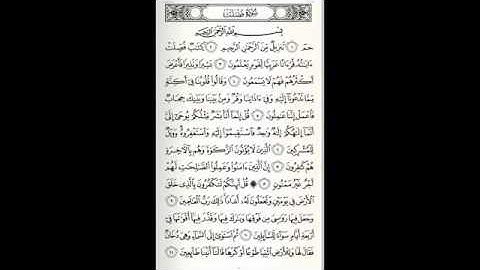 سورة فصلت
بسم الله الرحمن الرحيم
حم ۝١ تنزيل من الرحمن الرحيم ۝٢ كتب فصلت
ءايته قرءانا عربيا لقوم يعلمون ۝٣ بشيرا ونذيرا فأعرض
أكثرهم فهم لا يسمعون ۝٤ وقالوا قلوبنا في أكنة
مما تدعونا إليه وفي ءاذاننا وقر ومن بيننا وبينك حجاب
فاعمل إننا عملون ۝٥ قل إنما أنا بشر مثلكم يوحى إلي
أنما إلهكم إله وحد فاستقيموا إليه واستغفروه وويل
للمشركين ۝٦ الذين لا يؤتون الزكوة وهم بالأخرة
هم كفرون ۝٧ إن الذين ءامنوا وعملوا الصلحت لهم
أجر غير ممنون ۝٨ قل أئنكم لتكفرون بالذي خلق
الأرض في يومين وتجعلون له أندادا ذلك رب العلمين ۝٩
وجعل فيها روسي من فوقها وبرك فيها وقدر فيها أقوتها في
أربعة أيام سواء للسائلين ۝١٠ ثم استوى إلى السماء وهي دخان
فقال لها وللأرض ائتيا طوعا أو كرها قالتا أتينا طائعين ۝١١